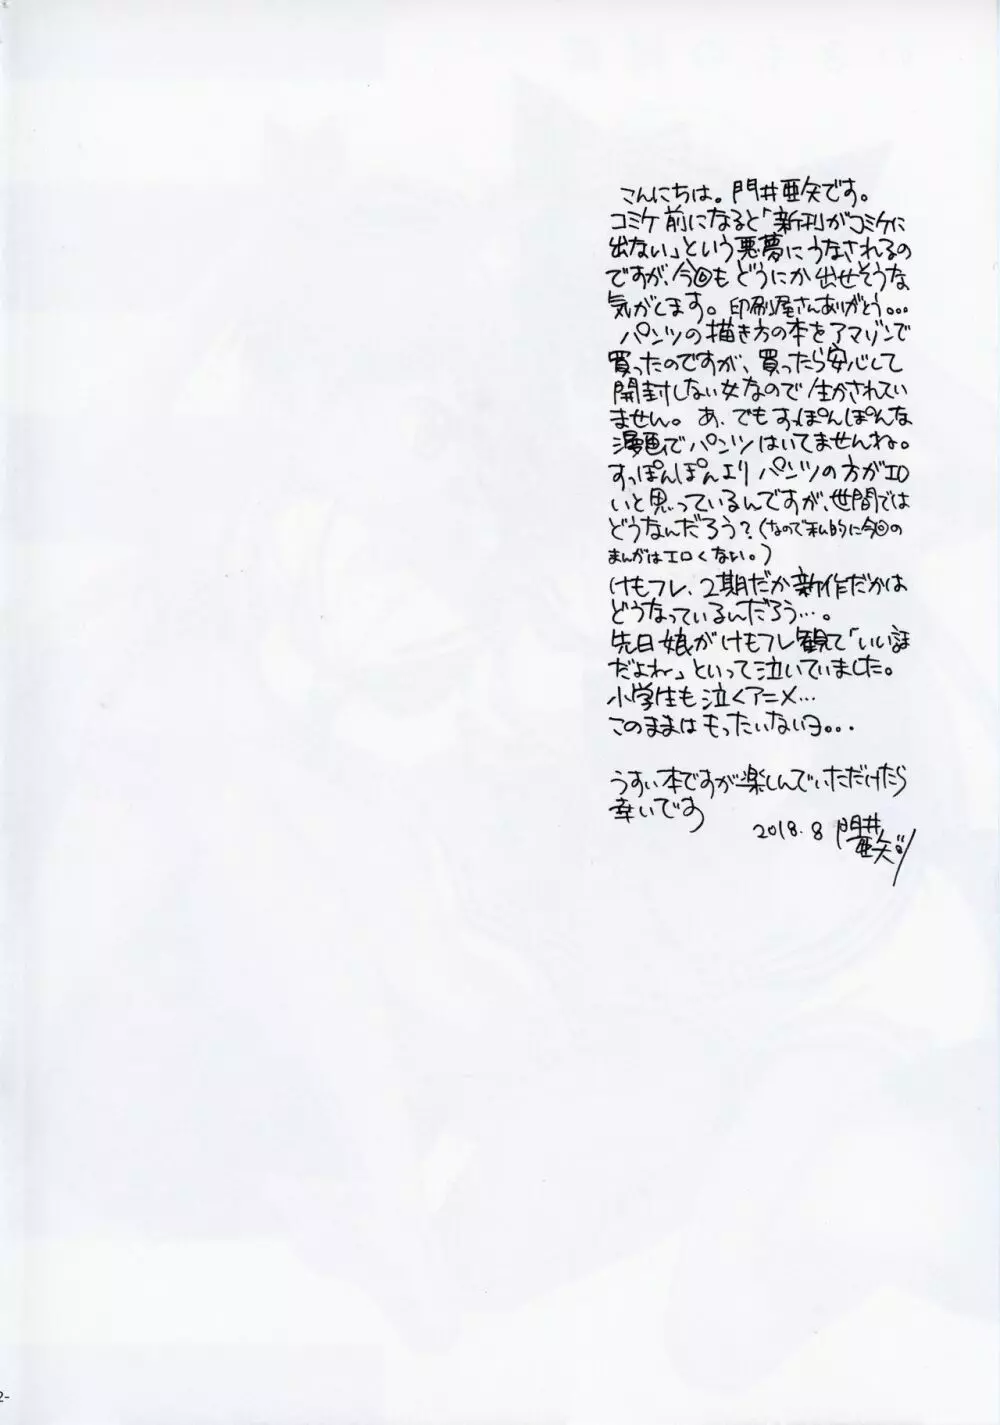 こんにちは。門井亜矢です。
コミケ前になると「新刊がコミケに
出ない」という悪夢にうなされるの
ですが、今回もどうにか出せそうな
気がします。印刷屋さんありがとう…
パンツの描き方の本をアマゾンで
買ったのですが、買ったら安心して
開封しない女なので生かされてい
ません。あ、でもすっぽんぽんな
漫画でパンツはいてませんね。
すっぽんぽんよりパンツの方がエロ
いと思っているんですが、世間では
どうなんだろう?(なので私的に今回の
まんがはエロくない。)
けもフレ、2期だか新作だかは
どうなっているんだろう…。
先日娘がけもフレ観て「いい話
だよね」といって泣いていました。
小学生も泣くアニメ…
このままはもったいないヨ…
うすい本ですが楽しんでいただけたら
幸いです
2018.8 門井亜矢
2-